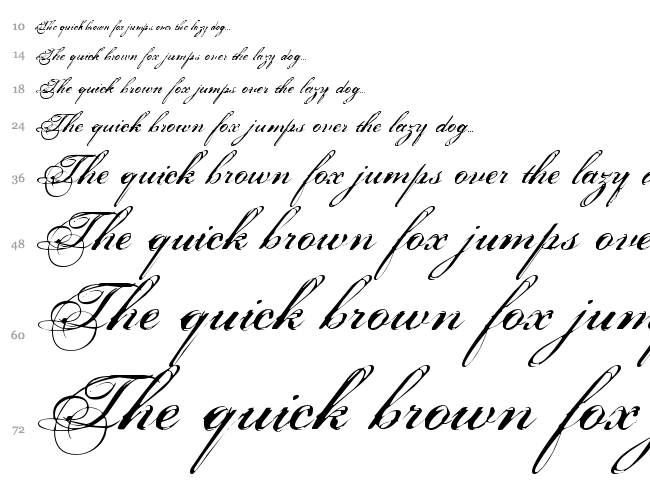 10 The quick brown fox jumps over the lazy dog...
14 The quick brown fox jumps over the lazy dog...
18 The quick brown fox jumps over the lazy dog...
24 The quick brown fox jumps over the lazy dog...
36 The quick brown fox jumps over the lazy d
48 The quick brown fox jumps ove
60 The quick brown fox jum
72 The quick brown fox j